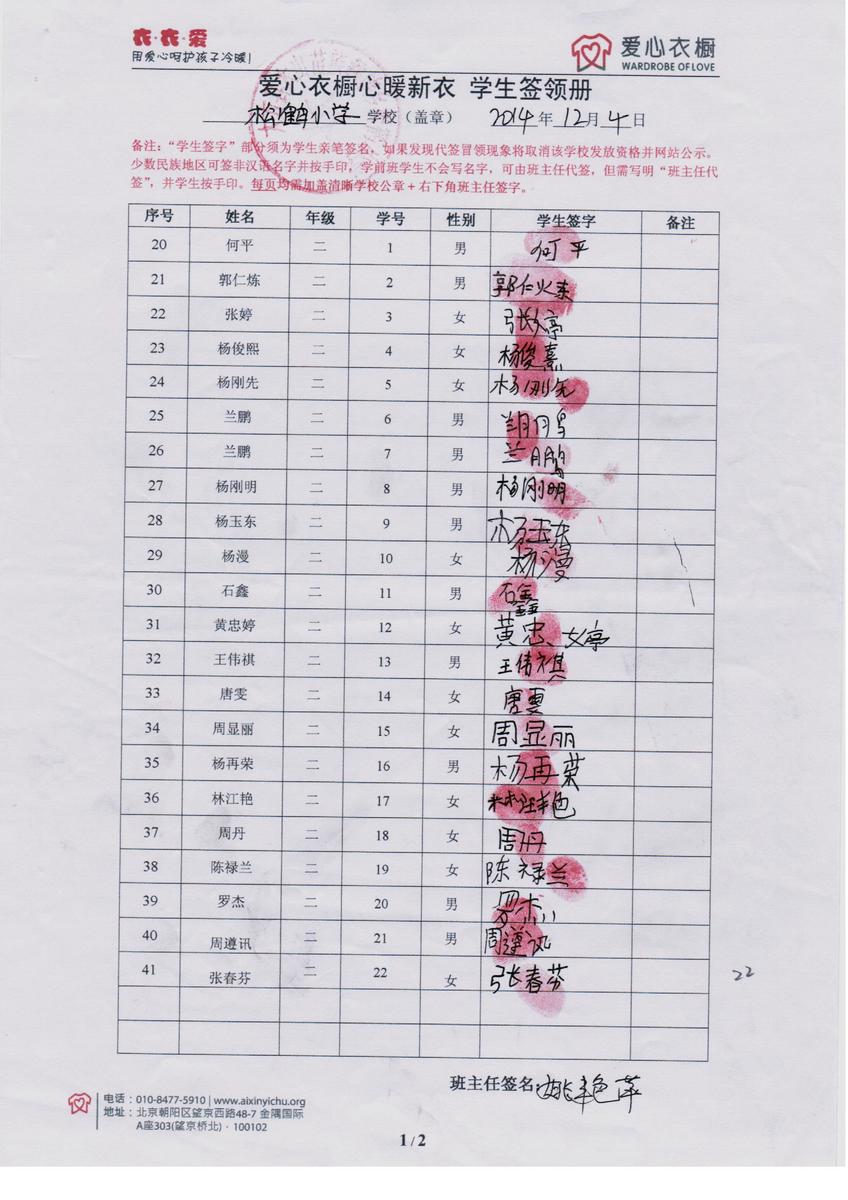 衣·衣·爱
用爱心呵护孩子冷暖!
爱心衣橱
WARDROBE OF LOVE
爱心衣橱心暖新衣 学生签领册
松鹤小学 学校（盖章） 2014年12月4日
备注：“学生签字”部分须为学生亲笔签名，如果发现代签冒领现象将取消该学校发放资格并网站公示。
少数民族地区可签非汉语名字并按手印，学前班学生不会写名字，可由班主任代签，但需写明“班主任代
签”，并学生按手印。每页均需加盖清晰学校公章+右下角班主任签字。
序号 姓名 年级 学号 性别 学生签字 备注
20 何平 二 1 男 何平
21 郭仁炼 二 2 男 郭仁炼
22 张婷 二 3 女 张婷
23 杨俊熙 二 4 女 杨俊熹
24 杨刚先 二 5 女 杨刚先
25 兰鹏 二 6 男
26 兰鹏 二 7 男 兰鹏
27 杨刚明 二 8 男 杨刚明
28 杨玉东 二 9 男 杨玉东
29 杨漫 二 10 女 杨漫
30 石鑫 二 11 男 石鑫
31 黄忠婷 二 12 女 黄忠婷
32 王伟祺 二 13 男 王伟祺
33 唐雯 二 14 女 唐雯
34 周显丽 二 15 女 周显丽
35 杨再荣 二 16 男 杨再荣
36 林江艳 二 17 女 林江艳
37 周丹 二 18 女 周丹
38 陈禄兰 二 19 女 陈禄兰
39 罗杰 二 20 男 罗杰
40 周遵讯 二 21 男 周遵讯
41 张春芬 二 22 女 张春芬
22
班主任签名: 姚艳萍
电话：010-8477-5910 | www.aixinyichu.org
地址：北京朝阳区望京西路48-7 金隅国际
A座303(望京桥北)·100102
1 / 2